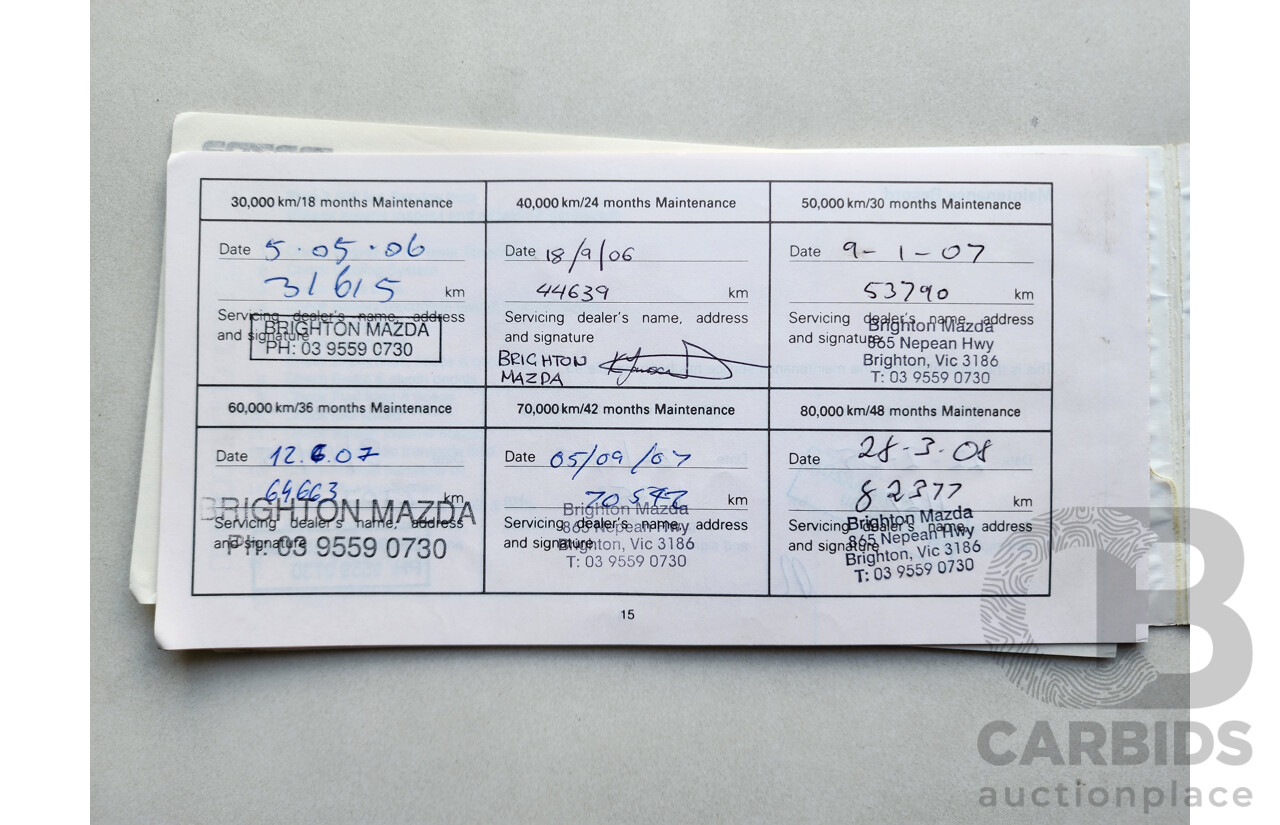 30,000 km/18 months Maintenance
Date 5.05.06
31615 km
Servicing dealer's name, address
and signature
BRIGHTON MAZDA
PH: 03 9559 0730
40,000 km/24 months Maintenance
Date 18/9/06
44639 km
Servicing dealer's name, address
and signature
BRIGHTON
MAZDA
50,000 km/30 months Maintenance
Date 9-1-07
53790 km
Servicing dealer's name, address
and signature
Brighton Mazda
865 Nepean Hwy
Brighton, Vic 3186
T: 03 9559 0730
60,000 km/36 months Maintenance
Date 12.6.07
64663 km
Servicing dealer's name, address
and signature
BRIGHTON MAZDA
PH: 03 9559 0730
70,000 km/42 months Maintenance
Date 05/09/07
km
Servicing dealer's name, address
and signature
Brighton Mazda
865 Nepean Hwy
Brighton, Vic 3186
T: 03 9559 0730
80,000 km/48 months Maintenance
Date 28-3-08
82377 km
Servicing dealer's name, address
and signature
Brighton Mazda
865 Nepean Hwy
Brighton, Vic 3186
T: 03 9559 0730
15
CARBIDS
auctionplace